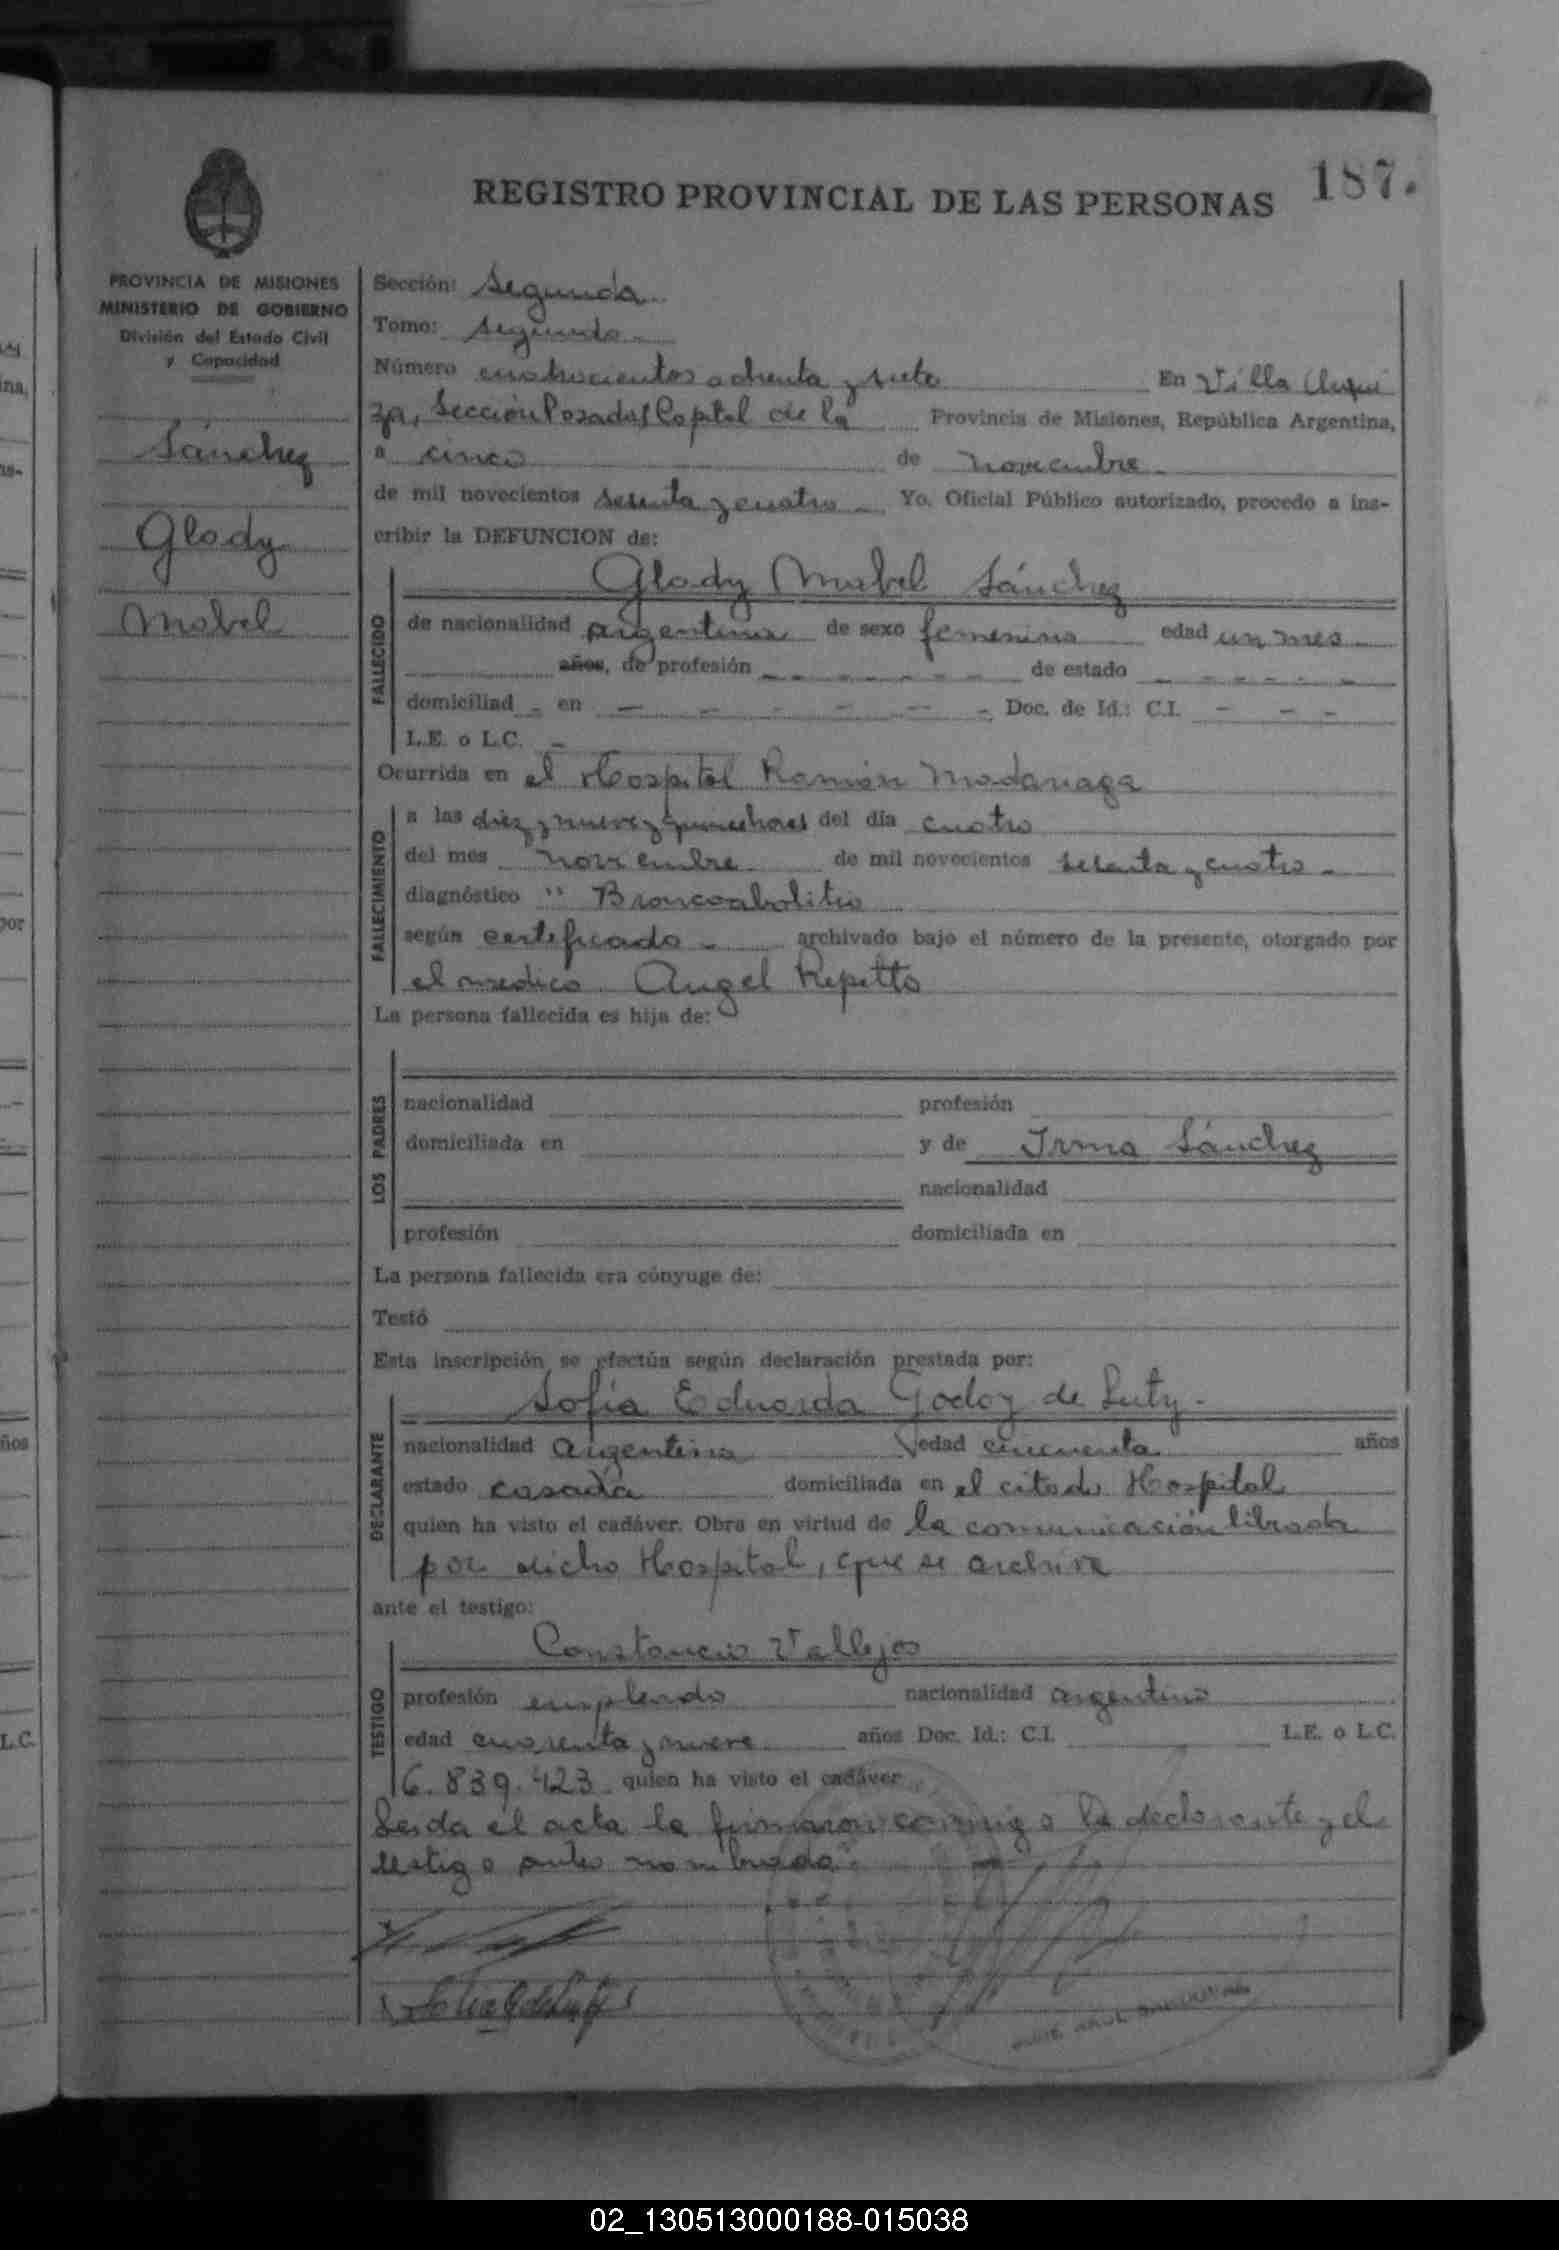 187.
REGISTRO PROVINCIAL DE LAS PERSONAS
PROVINCIA DE MISIONES
MINISTERIO DE GOBIERNO
División del Estado Civil
y Capacidad
Sánchez
Glady
Mabel
Sección: Segunda
Tomo: segundo
Número cuatrocientos ochenta y siete En Villa Urqui
za, Sección Posadas Capital de la Provincia de Misiones, República Argentina,
a cinco de noviembre
de mil novecientos sesenta y cuatro Yo. Oficial Público autorizado, procedo a ins-
cribir la DEFUNCION de:
Glady Mabel Sánchez
FALLECIDO
de nacionalidad argentina de sexo femenino edad un mes
años, de profesión - - - - - - - de estado - - - - - -
domiciliad - en - - - - - - Doc. de Id.: C.I. - - -
L.E. o L.C. -
Ocurrida en el Hospital Ramón Madariaga
FALLECIMIENTO
a las diez y nueve y quince horas del día cuatro
del més noviembre de mil novecientos sesenta y cuatro -
diagnóstico "
según certificado - archivado bajo el número de la presente, otorgado por
el medico Angel Repetto
La persona fallecida es hija de:
LOS PADRES
nacionalidad profesión
domiciliada en y de Irma Sánchez
nacionalidad
profesión domiciliada en
La persona fallecida era cónyuge de:
Testó
Esta inscripción se efectúa según declaración prestada por:
Sofía Eduarda Godoy de
DECLARANTE
nacionalidad argentina edad cincuenta años
estado casada domiciliada en el citado Hospital
quien ha visto el cadáver. Obra en virtud de la comunicación librada
por dicho Hospital, que se archiva
ante el testigo:
Constancio Vallejos
TESTIGO
profesión empleado nacionalidad argentino
edad cuarenta y nueve años Doc. Id.: C.I. L.E. o L.C.
6.839.423 quien ha visto el cadáver
Leida el acta la firmaron conmigo la declarante y el
testigo antes nombrado
02_130513000188-015038